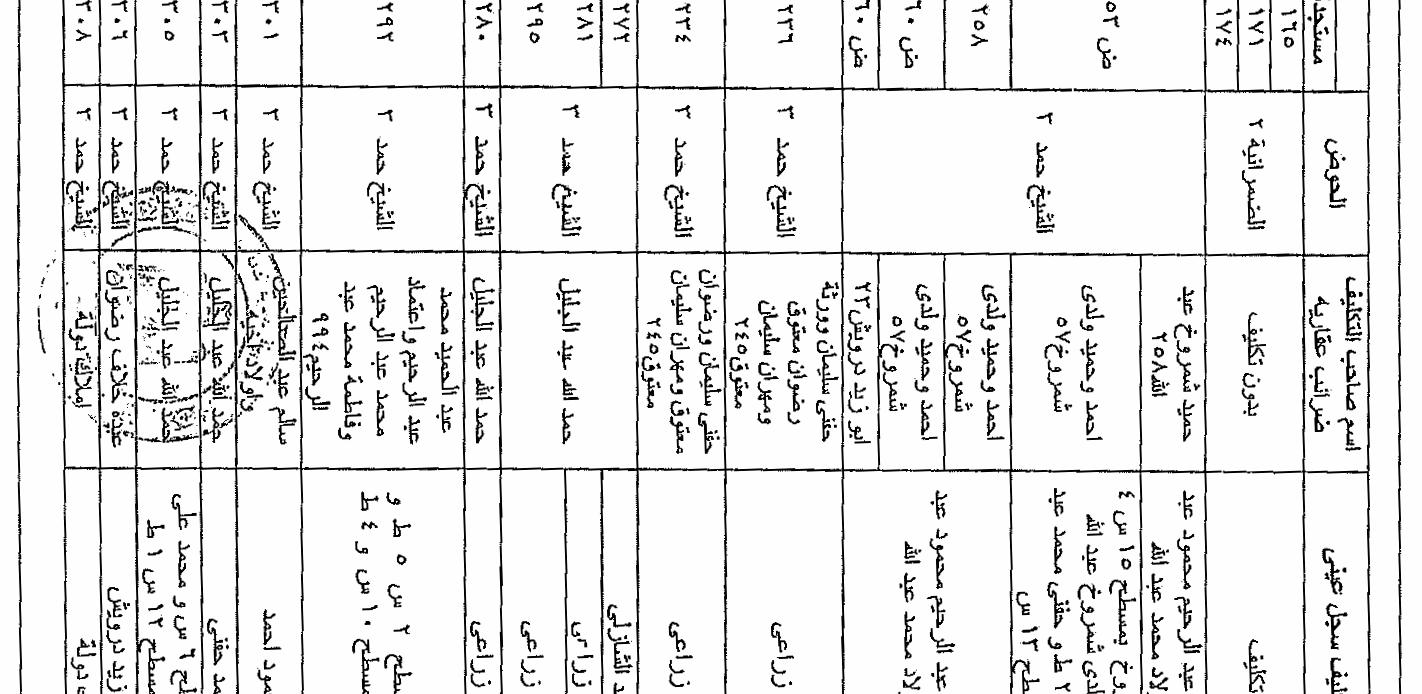 مستجد
١٦٥
١٧١
١٧٤
ض ٥٣
٢٥٨
ض ٦٠
٢٣٦
٢٣٤
٢٧٢
٢٨١
٢٩٥
٢٨٠
٢٩٢
٣٠١
٣٠٣
٣٠٥
٣٠٦
٣٠٨
الحوض
الضمرانية ٢
الشيخ حمد ٣
الشيخ حمد ٣
الشيخ حمد ٣
الشيخ حمد ٣
الشيخ حمد ٣
الشيخ حمد ٣
الشيخ حمد ٣
الشيخ حمد ٣
الشيخ حمد ٣
الشيخ حمد ٣
الشيخ حمد ٣
اسم صاحب التكليف
ضرائب عقارية
بدون تكليف
حميد شمروخ عبد
الله٢٥٨
احمد وحميد ولدى
شمروخ٥٧
احمد وحميد ولدى
شمروخ٥٧
احمد وحميد ولدى
شمروخ٥٧
ابو زيد درويش٢٣
حفنى سليمان وورثة
رضوان معتوق
ومهران سليمان
معتوق٢٤٥
حفنى سليمان ورضوان
معتوق ومهران سليمان
معتوق٢٤٥
حمد الله عبد الجليل
حمد الله عبد الجليل
عبد الحميد محمد
عبد الرحيم واعتماد
محمد عبد الرحيم
وفاطمة محمد عبد
الرحيم٩٩٤
سالم عبد الصالحين
واولاد اخيه
حمد الله عبد الجليل
حمد الله عبد الجليل
عبدة خلاف رضوان
املاك دولة
سجل عينى
تكليف
عبد الرحيم محمود عبد
محمد عبد الله
بمسطح ١٥ س ٤
شمروخ عبد الله
٢ ط و حفنى محمد عبد
١٣ س
عبد الرحيم محمود عبد
محمد عبد الله
زراعى
زراعى
الشازلى
زراعى
زراعى
زراعى
٢ س ٥ ط و
١٠ س و ٤ ط
احمد
حفنى
٦ س و محمد على
١٢ س ١ ط
زيد درويش
دولة